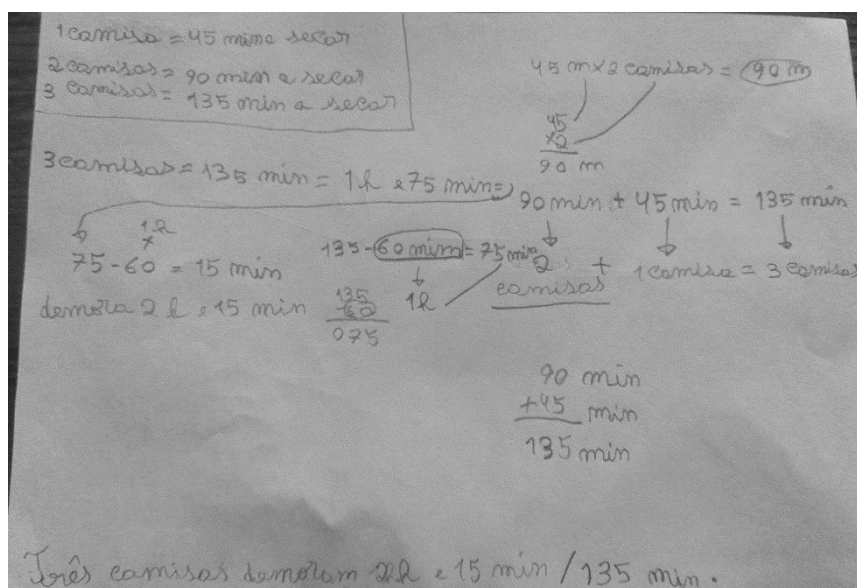 1 camisa = 45 min a secar
2 camisas = 90 min a secar
3 camisas = 135 min a secar
45 m x 2 camisas = 90 m
45
x2
90 m
3 camisas = 135 min = 1h e 75 min =
90 min + 45 min = 135 min
2 camisas + 1 camisa = 3 camisas
1h
75 - 60 = 15 min
demora 2h e 15 min
135 - 60 mim = 75 min
1h
135
-60
075
90 min
+45 min
135 min
Três camisas demoram 2h e 15 min / 135 min.